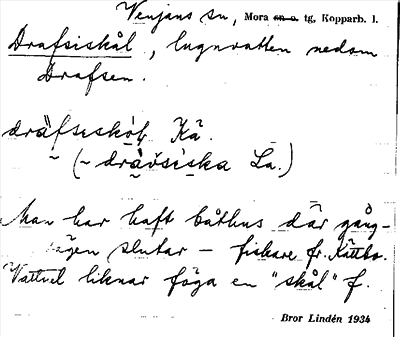 Venjans sn, Mora sn o. tg, Kopparb. l.
Drafsiskål, lugnvatten nedom
Drafsen.
Kä.
La.)
Man har haft båthus där gång-
vägen slutar – fiskare fr. Kättbo.
Vattnet liknar föga en "skål" f.
Bror Lindén 1934